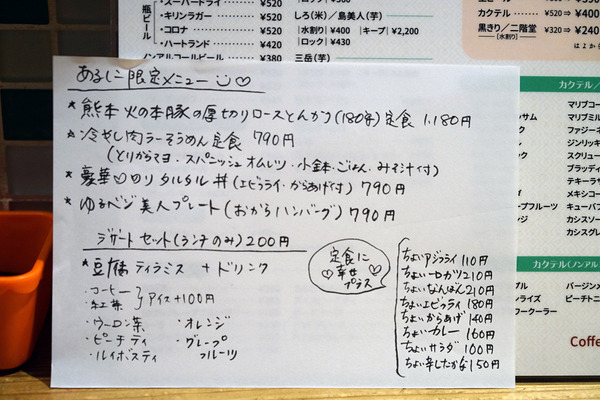 瓶ビール
・スーパードライ ¥520
・キリンラガー ¥520
・コロナ ¥520
・ハートランド ¥420
ノンアルコールビール ¥380
しろ(米)／島美人(芋)
|水割り| ¥400 |キープ| ¥2,200
|ロック| ¥430
三岳(芋)
カクテル ¥520⇒ ¥400
黒きり／二階堂 ¥320⇒ ¥240
[水割り]
はよか
あるしこ限定メニュー
* 熊本 火の本豚の厚切りロースとんかつ(180g)定食 1.180円
* 冷やし肉ラーそうめん定食 790円
(とりからマヨ・スパニッシュオムレツ・小鉢・ごはん・みそ汁付)
* 豪華♡のり タルタル丼(エビフライ・からあげ付) 790円
* ゆるベジ美人プレート(おからハンバーグ) 790円
デザートセット(ランチのみ) 200円
* 豆腐ティラミス + ドリンク
・コーヒー
・紅茶
アイス+100円
・ウーロン茶 ・オレンジ
・ピーチティ ・グレープフルーツ
・ルイボスティ
定食に
♡幸せ♡
プラス
ちょいアジフライ 110円
ちょいヒレカツ 210円
ちょいなんばん 210円
ちょいエビフライ 180円
ちょいからあげ 140円
ちょいカレー 160円
ちょいサラダ 100円
ちょい辛したかな 150円
カクテル(アルコ
マリブコー
マリブミル
ファジーネ
ジンリッキ
スクリュー
ブラッディ
テキーラサ
メキシコー
キューバフ
カシスソー
カシスグレ
カクテル(ノンア
バージンメ
ピーチトニ
Coffee